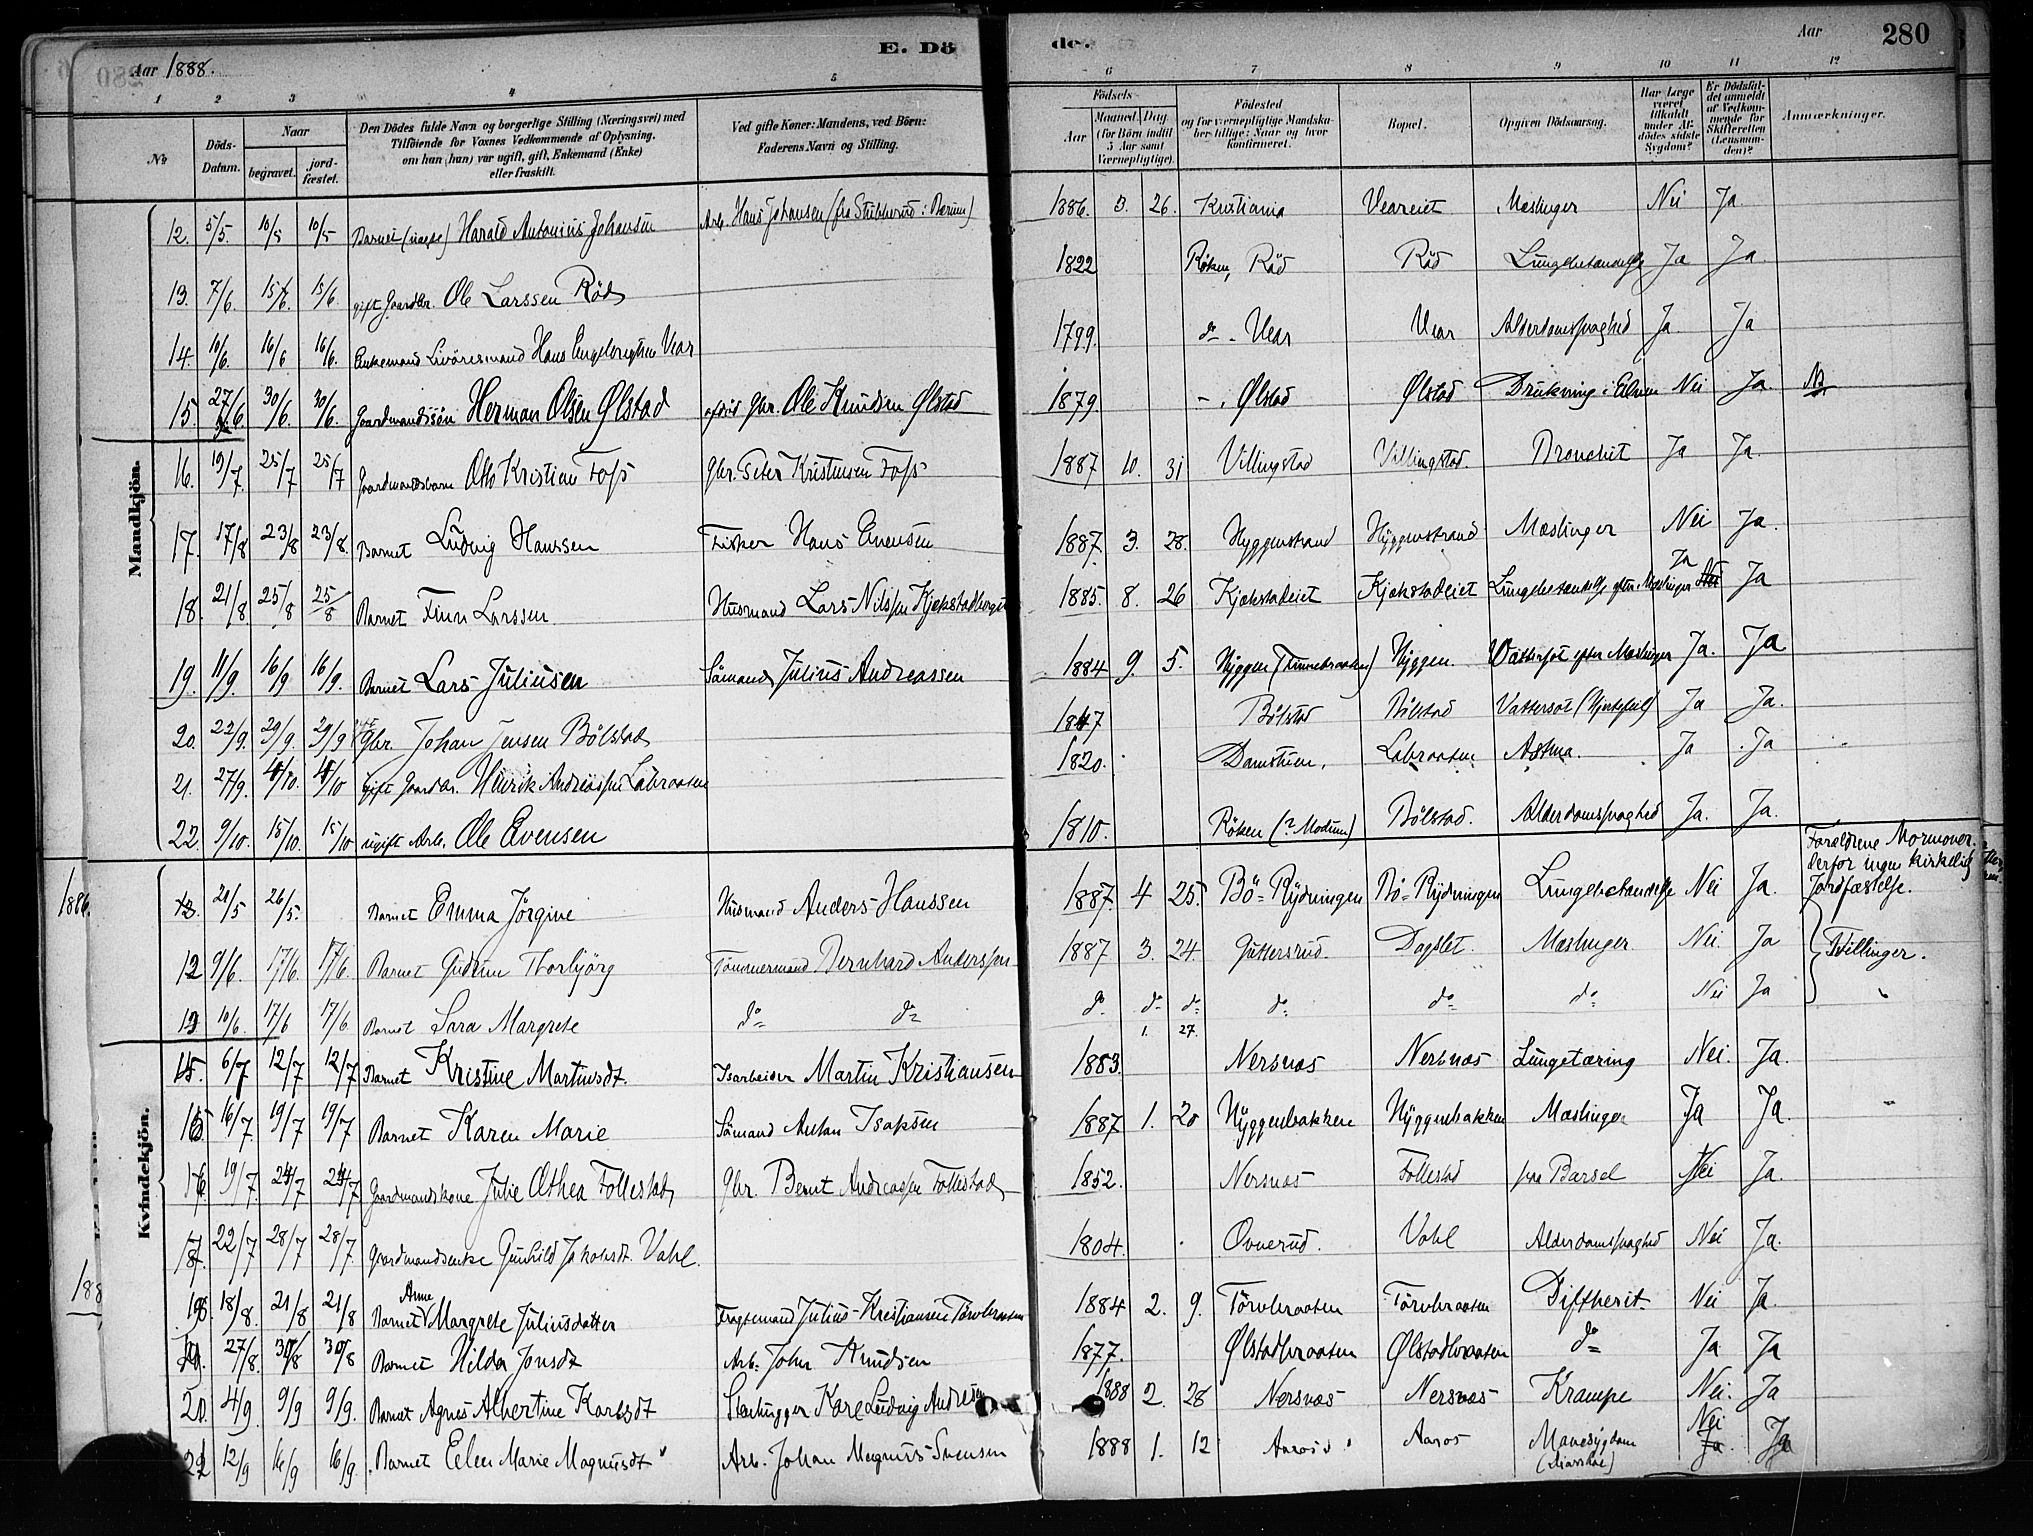 E. Dö de.
Aar 1888.
Aar
280
1 2 3 4 5 6 7 8 9 10 11 12
No
Döds-Datum.
Naar
begravet.
jord-fæstet.
Den Dödes fulde Navn og borgerlige Stilling (Næringsvei) med
Tilföiende for Voxnes Vedkommende af Oplysning,
om han (hun) var ugift, gift, Enkemand (Enke)
eller fraskilt.
Ved gifte Koner: Mandens, ved Börn:
Faderens Navn og Stilling.
Födsels-
Aar
Maaned Dag
(for Börn indtil 5 Aar samt Værnepligtige).
Födested
og for værnepligtige Mandskaber tillige: Naar og hvor konfirmeret.
Bopæl.
Opgiven Dödsaarsag.
Har Læge været tilkaldt under Afdödes sidste Sygdom?
Er Dödsfaldet anmeldt af Vedkommende for Skifteretten (Lensmanden)?
Anmærkninger.
Mandkjön.
12. 5/5. 10/5 10/5 Barnet (uægte) Harald Antonius Johansen Arb. Hans Johansen (fra Stubberud i Bærum) 1886. 3. 26. Kristiania Veareiet Mæslinger Nei Ja
13. 7/6. 15/6. 15/6. gift Gaardbr. Ole Larssen Röd 1822 Röken, Röd Röd Lungebetændelse Ja Ja.
14. 10/6. 16/6 16/6. Enkemand Livöresmand Hans Engebregtsen Vear 1799. do - Vear Vear Alderdomssvaghed Ja Ja
15. 27/6. 30/6. 30/6. Gaardmandssön Herman Olsen Ølstad afdöd Gbr. Ole Knudsen Ølstad 1879. - . Ølstad Ølstad Drukning i Elven Nei Ja. NB.
16. 19/7. 25/7 25/7 Gaardmandsbarn Otto Kristian Foss Gbr. Peter Kristensen Foss 1887 10. 31 Villingstad Villingstad. Bronchit Ja Ja.
17. 17/8 23/8 23/8. Barnet Ludvig Hanssen Fisker Hans Evensen 1887. 3. 28. Hyggenstrand Hyggenstrand Mæslinger Nei Ja.
18. 21/8. 25/8 25/8 Barnet Finn Larssen. Husmand Lars Nilssen Kjekstadhagen 1885. 8. 26 Kjekstadeiet Kjekstadeiet Lungebetændelse efter Mæslinger Ja Ja
19. 11/9. 16/9 16/9. Barnet Lars Juliusen Sömand Julius Andreassen 1884 9. 5. Hyggen (Tinnebraaten) Hyggen. Vattersot efter Mæslinger Ja. Ja
20. 22/9. 29/9. 29/9 Gbr. Johan Jensen Bölstad 1847 Bölstad Bölstad Vattersot (Hjertefeil) Ja Ja.
21. 27/9. 4/10. 4/10 gift Gaardbr. Henrik Andreassen Labraaten 1820. Damstien. Labraaten Astma. Ja Ja
22. 9/10. 15/10. 15/10 ugift Arb. Ole Evensen 1810. Röken (? Modum) Bölstad. Alderdomssvaghed Ja. Ja.
Kvindekjön.
1886.
20/5 26/5. Barnet Emma Jörgine Husmand Anders Hanssen 1887. 4 25. Bö-Rydningen Bö-Rydningen Lungebetændelse Nei Ja. Forældrene Mormoner. derfor ingen kirkelig Jordfæstelse.
12 9/6. 17/6. 17/6. Barnet Gudrun Thorbjörg Tömmermand Bernhard Anderssen 1887 3. 24. Guttersrud. Dagslet. Mæslinger Nei Ja Tvillinger.
13 10/6. 17/6 17/6. Barnet Sara Margrete do do do do do do do do Nei Ja
6/7 12/7 12/7 Barnet Kristine Martinsdt. Isarbeider Martin Kristiansen 1883. 1. 27. Nersnæs Nersnæs Lungetæring Nei Ja.
15 16/7. 19/7 19/7 Barnet Karen Marie Sömand Anton Isaksen 1887 1. 20 Hyggenbakken Hyggenbakken Mæslinger Ja Ja.
16 19/7. 24/7 24/7 Gaardmandskone Julie Othea Follestad Gbr. Bernt Andreassen Follestad 1852. Nersnæs Follestad paa Barsel Nei Ja.
17 22/7 28/7 28/7. Gaardmandsenke Gunhild Jakobsdt. Vahl. 1804. Ovnerud. Vahl Alderdomssvaghed Nei Ja.
188
18. 18/8. 21/8 21/8 Barnet Anne Margrete Juliusdatter Fragtemand Julius Kristiansen Törvbraaten 1884 2. 9. Törvbraaten Törvbraaten Diftherit. Nei Ja.
19. 27/8. 30/8 30/8 Barnet Hilda Jonsdt Arb. John Knudsen 1877. Ølstadbraaten Ølstadbraaten do Ja Ja
20. 4/9. 9/9 9/9. Barnet Agnes Albertine Karlsdt Stenhugger Karl Ludvig Andresen 1888 2. 28 Nersnæs Nersnæs Krampe Nei. Ja
12/9 16/9 16/9. Barnet Ellen Marie Magnusdt Arb. Johan Magnus Svensen 1888 1. 12 Aaros Aaros Mavesygdom (Diarrhoe) Nei Ja